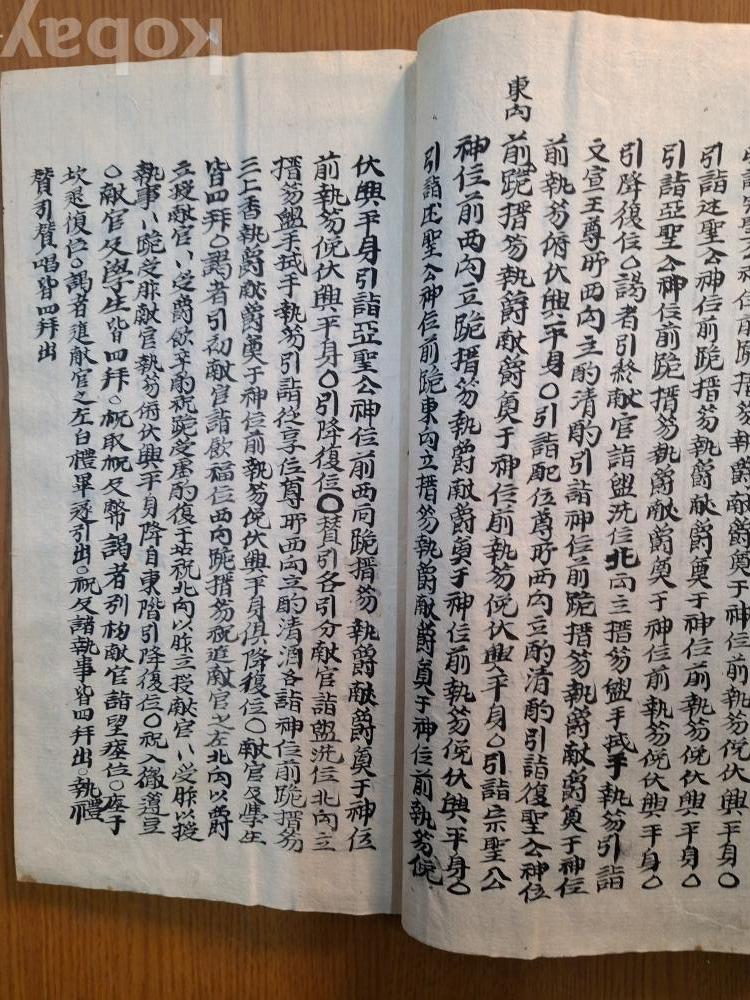 引詣述聖公神位前跪搢笏執爵献爵奠于神位前執笏俛伏興平身○
引詣亞聖公神位前跪搢笏執爵献爵奠于神位前執笏俛伏興平身○
引降復位○謁者引終献官詣盥洗位北向立搢笏盥手拭手執笏引詣
文宣王尊所西向立酌清酌引詣神位前跪搢笏執爵献爵奠于神位
前執笏俯伏興平身○引詣配位尊所西向立酌清酌引詣復聖公神位
東向
前跪搢笏執爵献爵奠于神位前執笏俛伏興平身○引詣宗聖公
神位前西向立跪搢笏執爵献爵奠于神位前執笏俛伏興平身○
引詣述聖公神位前跪東向立搢笏執爵献爵奠于神位前執笏俛
伏興平身引詣亞聖公神位前西向跪搢笏執爵献爵奠于神位
前執笏俛伏興平身○引降復位○賛引各引分献官詣盥洗位北向立
搢笏盥手拭手執笏引詣從享位尊所西向立酌清酒各詣神位前跪搢笏
三上香執爵献爵奠于神位前執笏俛伏興平身俱降復位○献官及學生
皆四拜○謁者引初献官詣飮福位西向跪搢笏祝進献官之左北向以爵
立授献官〻受爵飮卒爵祝跪受虛爵復于坫祝北向以胙立授献官〻受胙以授
執事〻跪受胙献官執笏俯伏興平身降自東階引降復位○祝入徹籩豆
○献官及學生皆四拜○祝取祝及幣謁者引初献官詣望瘞位○瘞于
坎退復位○謁者進献官之左白禮畢遂引出○祝及諸執事皆四拜出○執禮
賛引賛唱皆四拜出
kobay